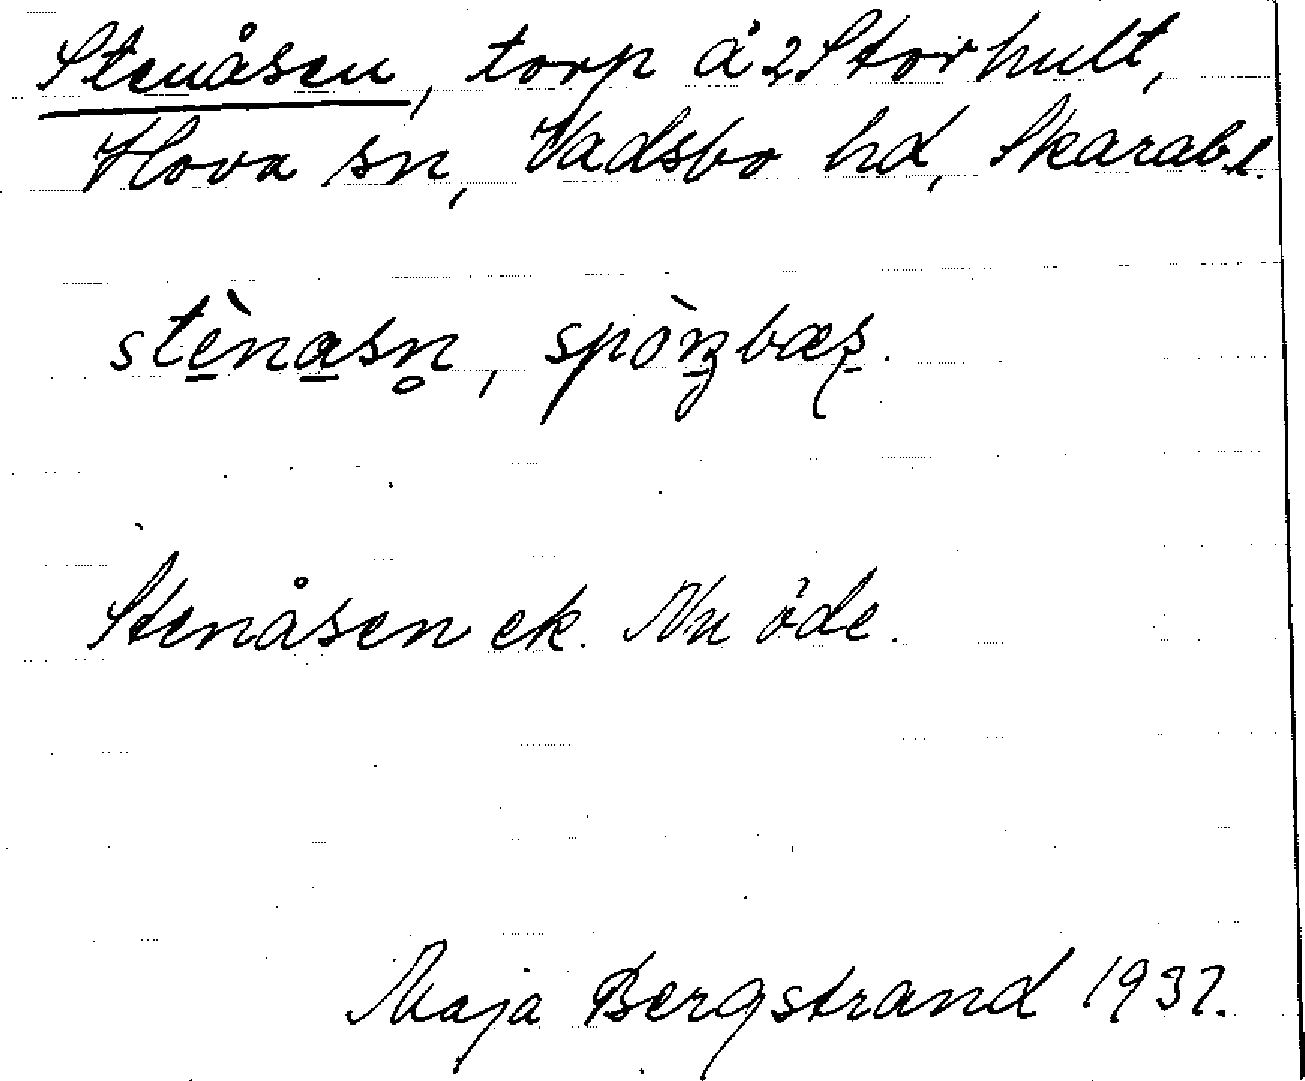 Stenåsen, torp å 2 Storhult,
Hova sn, Vadsbo hd, Skarab.l.
stè̱na̱sn̥,
Stenåsen ek. Nu öde.
Maja Bergstrand 1937.